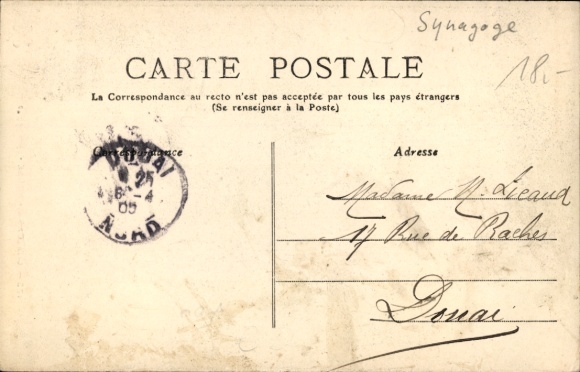 Synagoge
18,-
CARTE POSTALE
La Correspondance au recto n'est pas acceptée par tous les pays étrangers
(Se renseigner à la Poste)
Correspondance
Adresse
DOUAI
25
-4
05
NORD
Madame M.
17 Rue de Raches
Douai